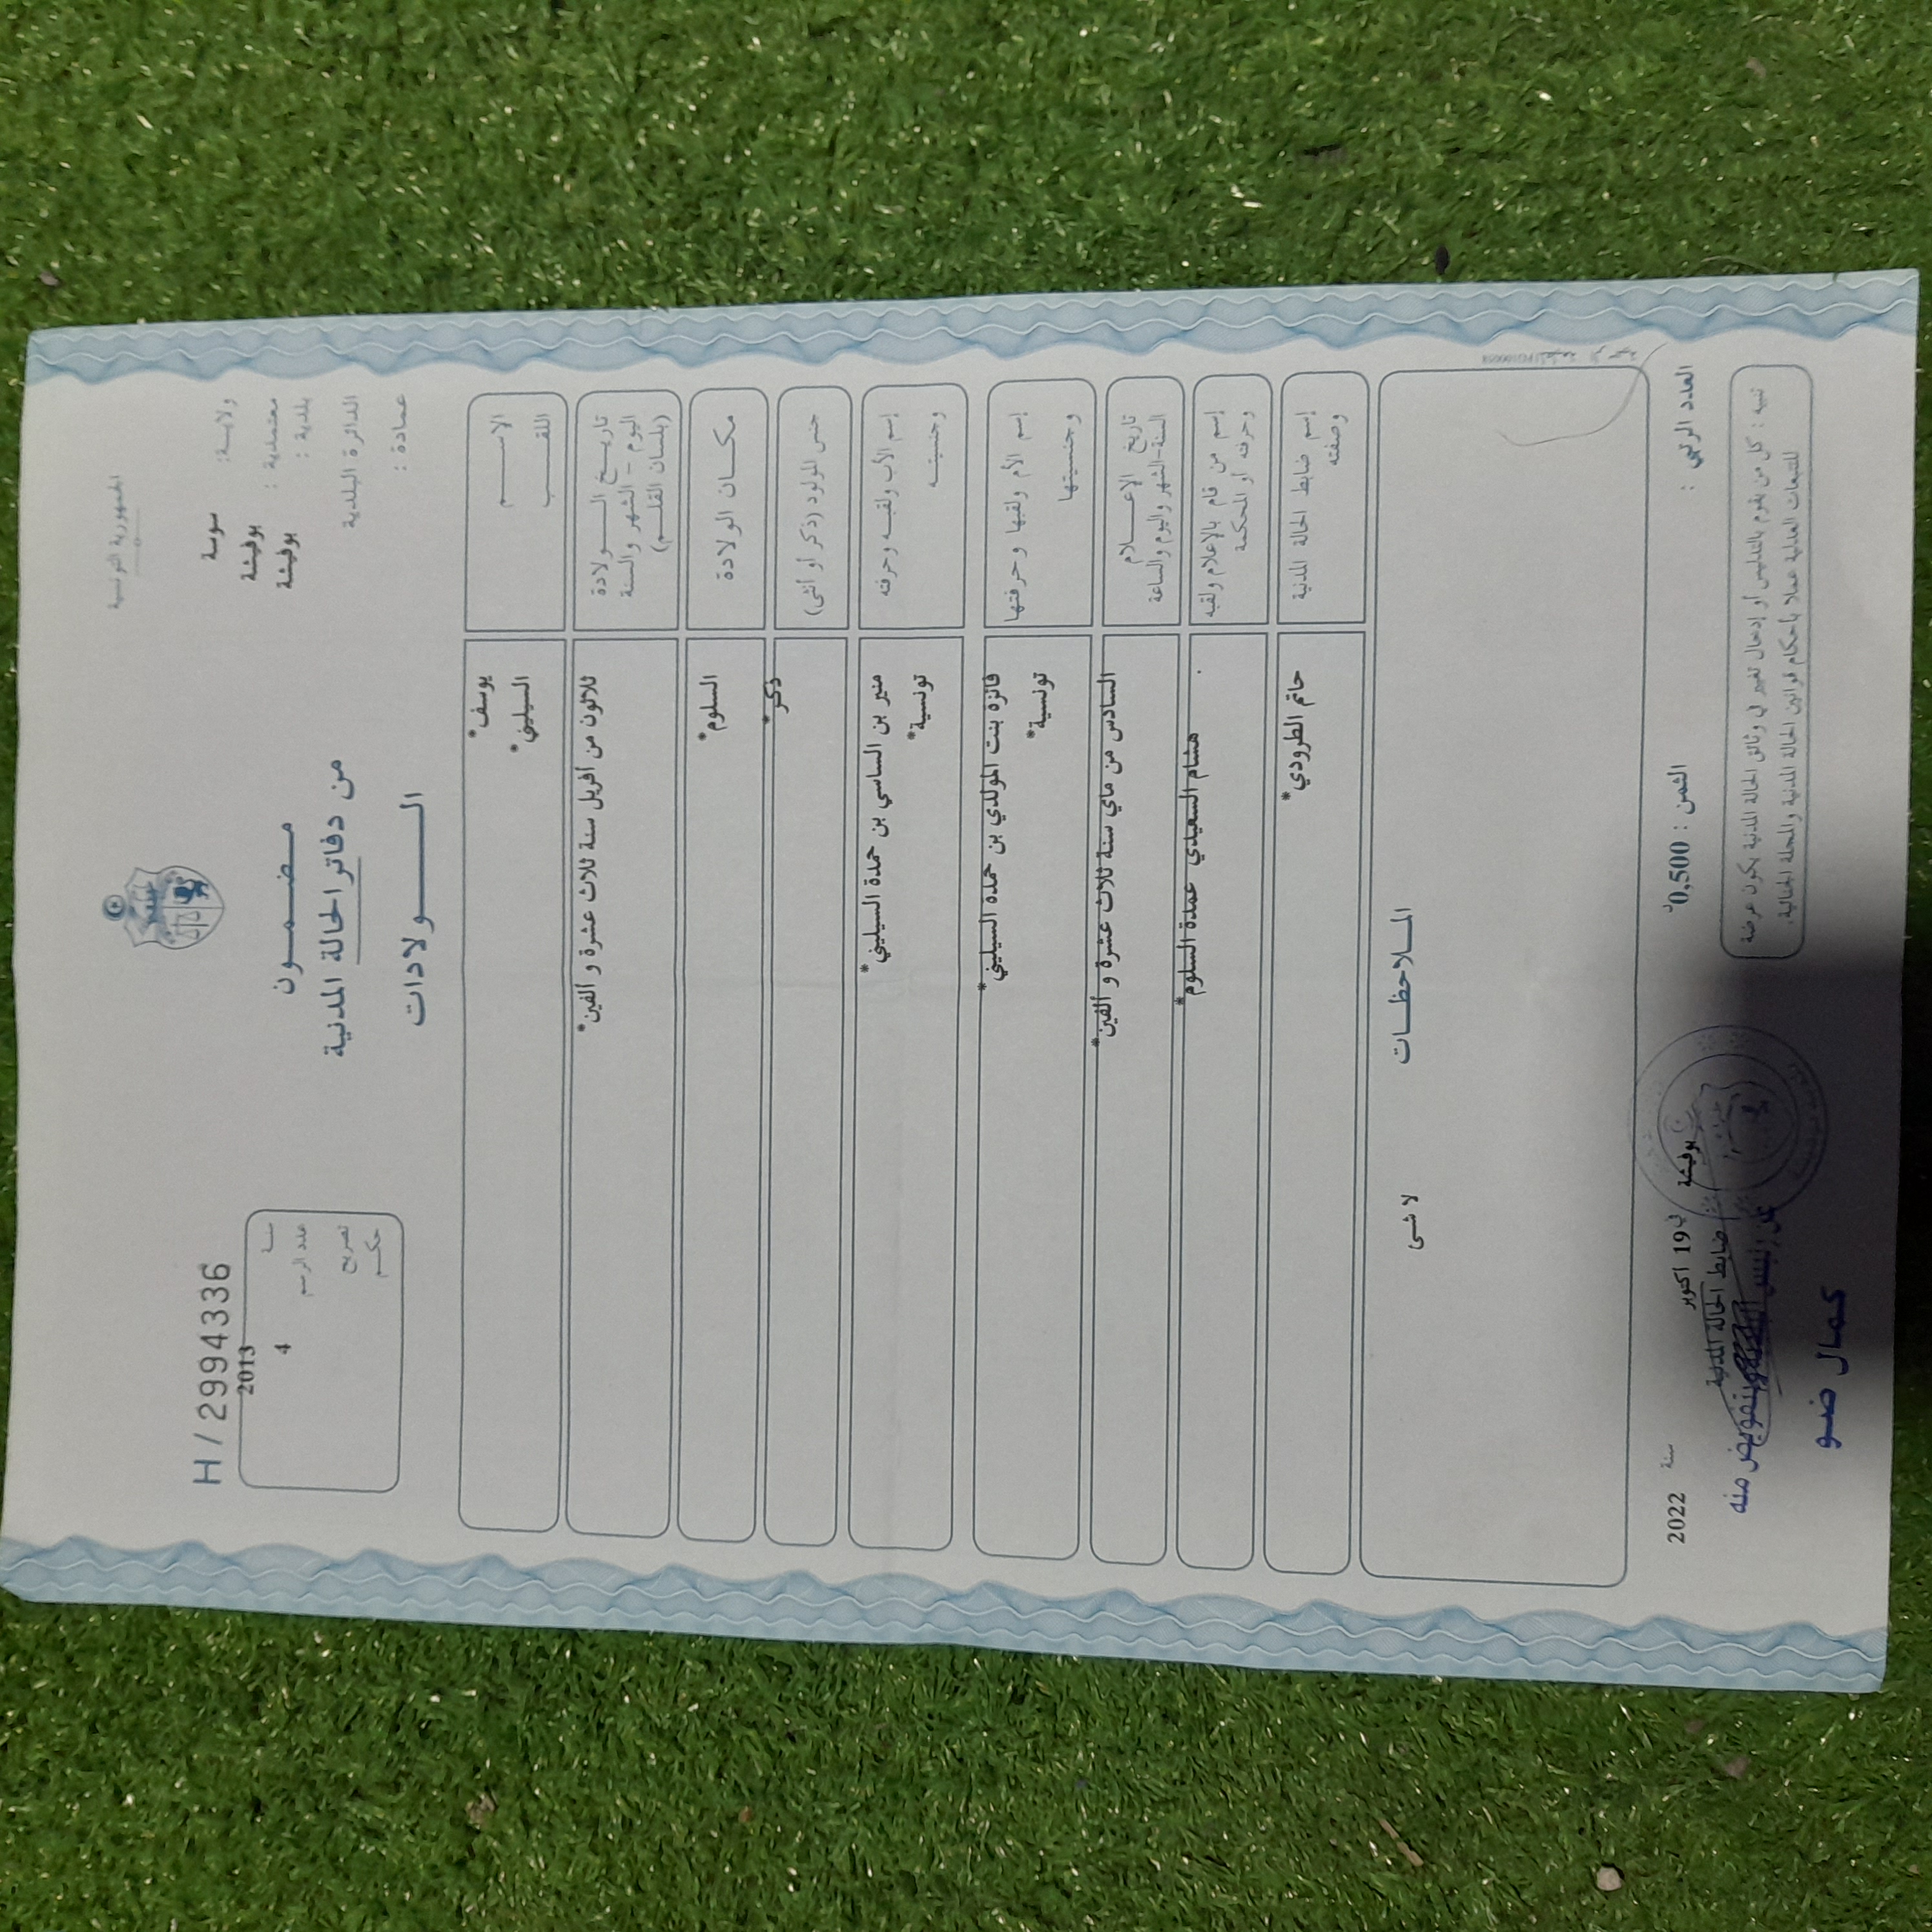 الجمهورية التونسية
ولايـــة: سوسة
معتمدية : بوفيشة
بلدية : بوفيشة
الدائرة البلدية
عمادة :
مـضـمـون
من دفاتر الحالة المدنية
الـــولادات
H/2994336
سنة 2013
عدد الرسم 4
تصريح
حكـم
الاســـم يوسف*
اللقـــب السيليني*
تاريــخ الـــولادة ثلاثون من أفريل سنة ثلاث عشرة و ألفين*
اليوم - الشهر والسنة
(بلسان القلـم)
مكــان الولادة السلوم*
جنس المولود (ذكر أو أنثى) ذكر*
إسم الأب ولقبـه وحرفته منير بن الساسي بن حمدة السيليني*
وجنسيتــه تونسية*
إسم الأم ولقبها وحرفتها فائزة بنت المولدي بن حمدة السيليني*
وجنسيتها تونسية*
تاريخ الإعـــلام السادس من ماي سنة ثلاث عشرة و ألفين*
السنة-الشهر واليوم والساعة
إسم من قام بالإعلام ولقبه هشام السعيدي عمدة السلوم*
وحرفته أو المحكمة
إسم ضابط الحالة المدنية حاتم الطرودي*
وصفته
المـلاحظــات
لا شـى
العدد الرتبي :
الثمن : 0,500د
بوفيشة في 19 اكتوبر سنة 2022
ضابط الحالة المدنية
منه
كمال ضو
تنبيه : كل من يقوم بالتدليس أو إدخال تغيير في وثائق الحالة المدنية يكون عرضة
للتتبعات العدلية عملا بأحكام قوانين الحالة المدنية والمجلة الجنائية.